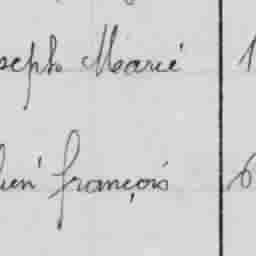 seph Marie 1
lien François 6